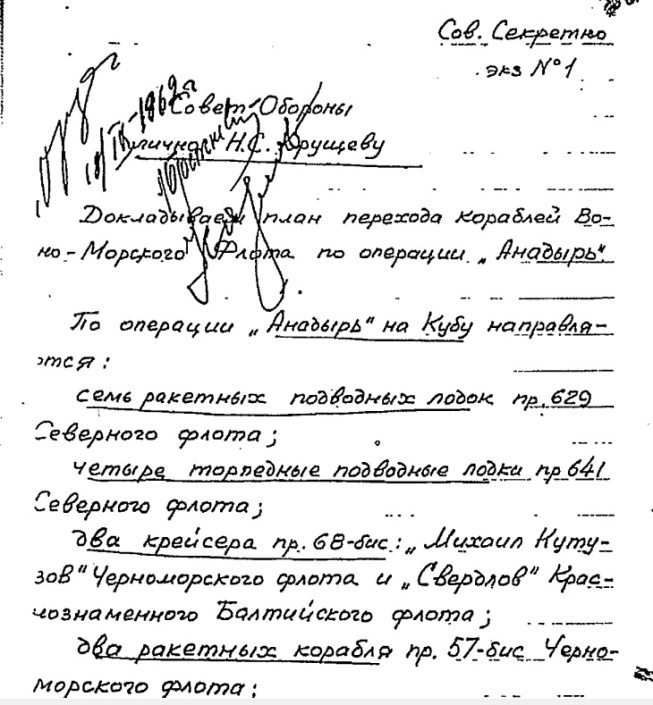 Сов. Секретно
экз №1
18/IX-1962 г
Совет Обороны
Н.С. Хрущеву
Докладываем план перехода кораблей Во-
но-Морского Флота по операции „Анадырь“.
По операции „Анадырь“ на Кубу направля-
ются:
семь ракетных подводных лодок пр. 629
Северного флота;
четыре торпедные подводные лодки пр 641
Северного флота;
два крейсера пр. 68-бис: „Михаил Куту-
зов“ Черноморского флота и „Свердлов“ Крас-
нознаменного Балтийского флота;
два ракетных корабля пр. 57-бис Черно-
морского флота;